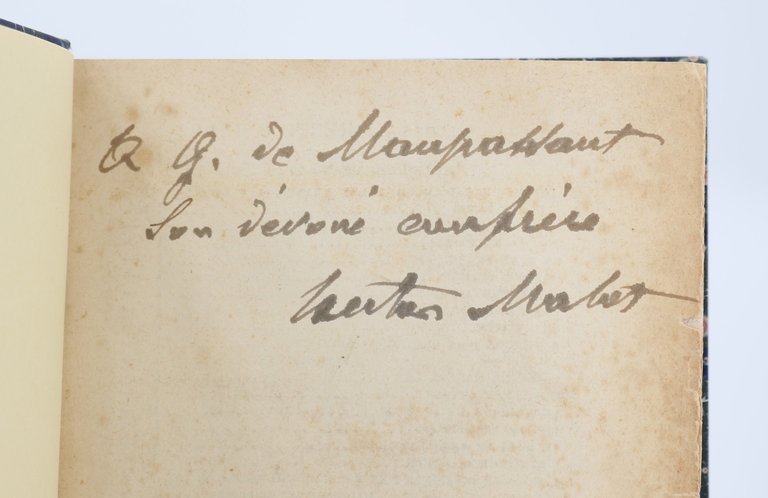 A G. de Maupassant
Son dévoué confrère
Hector Malot